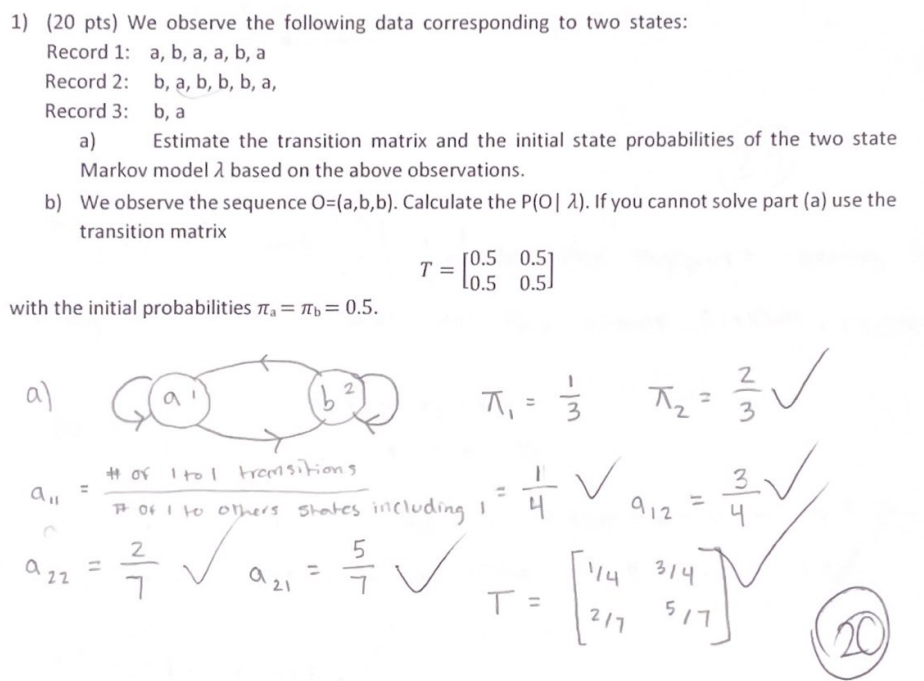 1) (20 pts) We observe the following data corresponding to two states:
Record 1: a, b, a, a, b, a
Record 2: b, a, b, b, b, a,
Record 3: b, a
a) Estimate the transition matrix and the initial state probabilities of the two state
Markov model λ based on the above observations.
b) We observe the sequence O=(a,b,b). Calculate the P(O| λ). If you cannot solve part (a) use the
transition matrix
T = [0.5 0.5
0.5 0.5]
with the initial probabilities πa = πb = 0.5.
a) a 1 b 2 π₁ = 1/3 π₂ = 2/3 ✓
a₁₁ = # of 1 to 1 transitions / # of 1 to others states including 1 = 1/4 ✓ a₁₂ = 3/4 ✓
a₂₂ = 2/7 ✓ a₂₁ = 5/7 ✓ T = [1/4 3/4
2/7 5/7] ✓
20